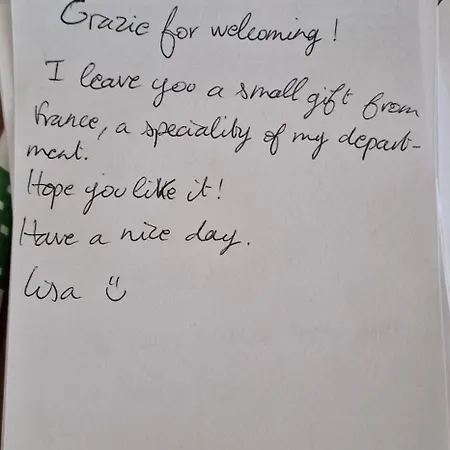 Grazie for welcoming!
I leave you a small gift from
France, a speciality of my depart-
ment.
Hope you like it!
Have a nice day.
Lisa